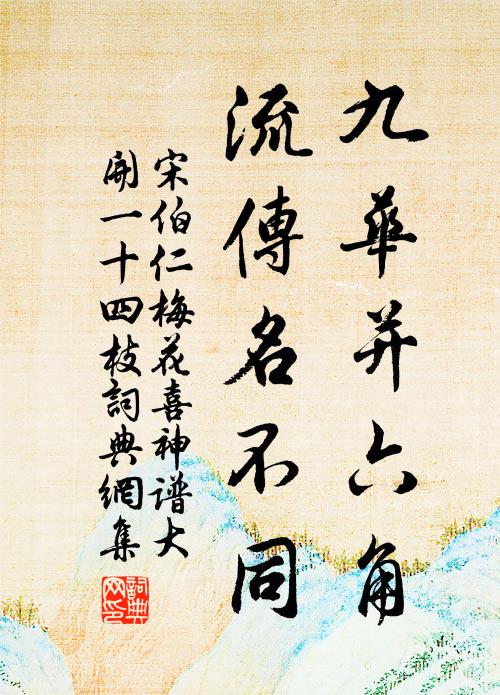 九華并六角
流傳名不同
宋伯仁梅花喜神譜大
開一十四枝詞典網集
詞典
网印